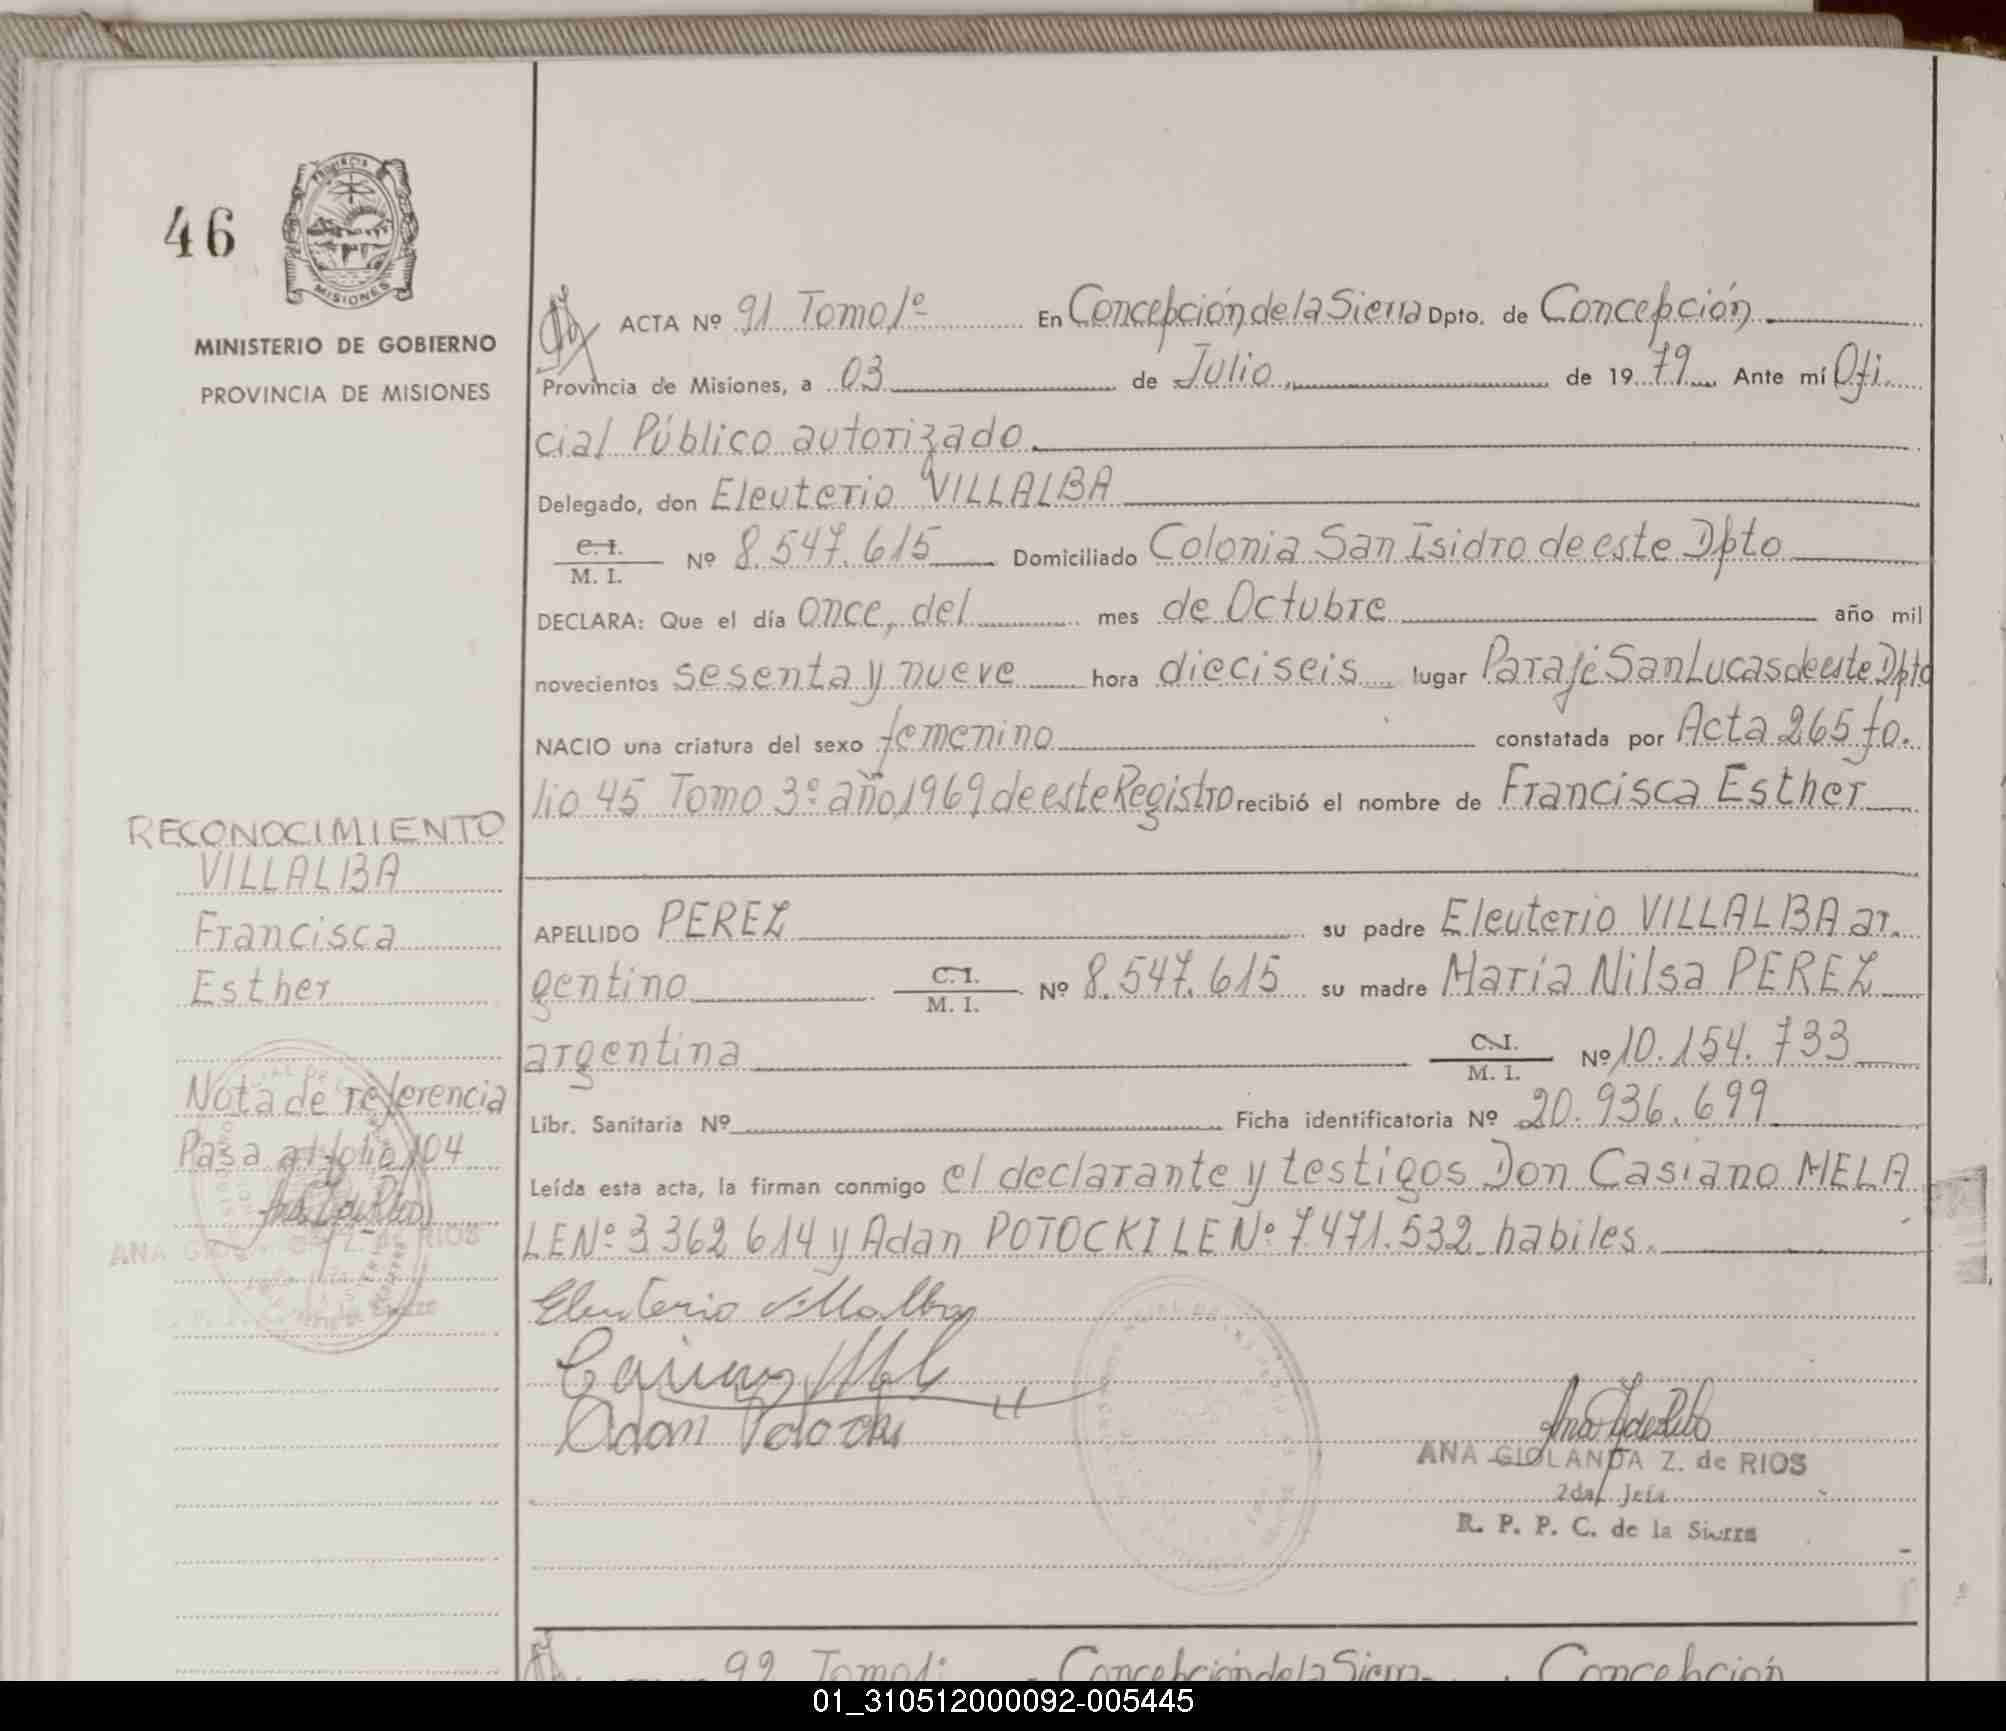 46
PROVINCIA
MISIONES
MINISTERIO DE GOBIERNO
PROVINCIA DE MISIONES
RECONOCIMIENTO
VILLALBA
Francisca
Esther
Nota de referencia
Pasa al folio 104
ANA GIOLANDA Z. de RIOS
ACTA Nº 91 Tomo 1º En Concepción de la Sierra Dpto. de Concepción
Provincia de Misiones, a 03 de Julio, de 1979 Ante mí Ofi.
cial Público autorizado.
Delegado, don Eleuterio VILLALBA
C.I.
M. I. Nº 8.547.615 Domiciliado Colonia San Isidro de este Dpto
DECLARA: Que el día once, del mes de Octubre año mil
novecientos sesenta y nueve hora dieciseis lugar Paraje San Lucas de este Dpto
NACIO una criatura del sexo femenino constatada por Acta 265 fo.
lio 45 Tomo 3º año, 1969 de este Registro recibió el nombre de Francisca Esther
APELLIDO PEREZ su padre Eleuterio VILLALBA ar.
gentino C.I. M. I. Nº 8.547.615 su madre María Nilsa PEREZ
argentina C.I. M. I. Nº 10.154.733
Libr. Sanitaria Nº Ficha identificatoria Nº 20.936.699
Leída esta acta, la firman conmigo el declarante y testigos Don Casiano MELA
LE Nº 3362 614 y Adan POTOCKI LE Nº 7.471.532 habiles.
Eleuterio Villalba
Adan Potocki
ANA GIOLANDA Z. de RIOS
2da. Jefa
R. P. P. C. de la Sierra
92 Tomo 1º Concepción de la Sierra Concepción
01_310512000092-005445